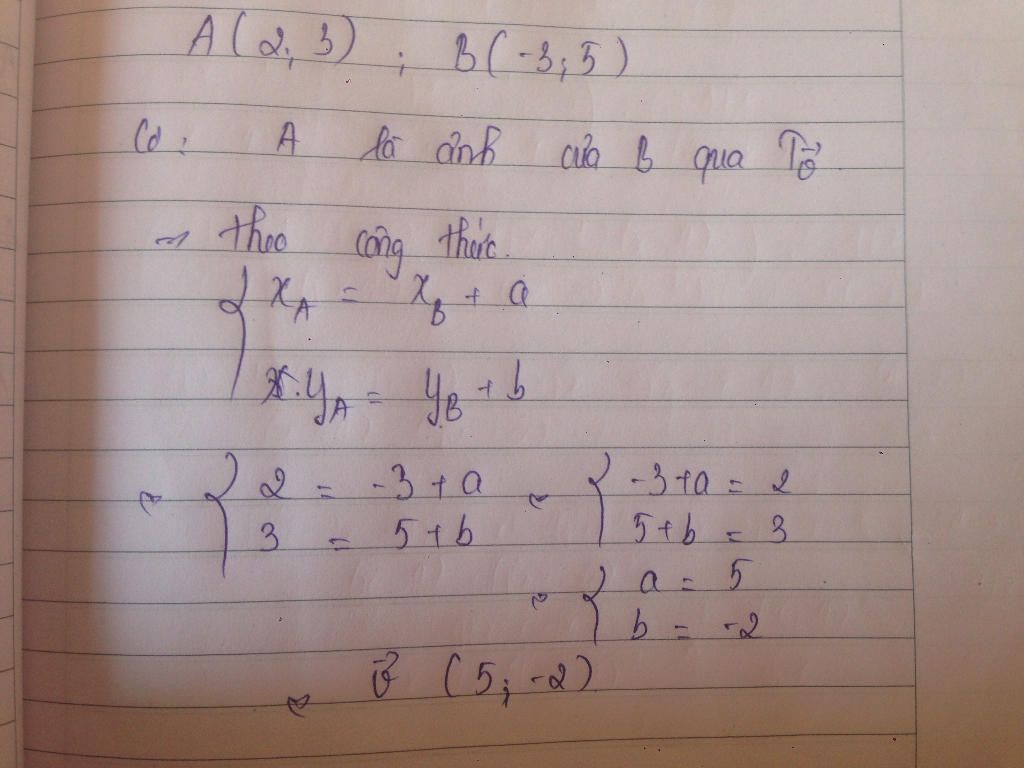 A(2; 3) ; B(-3; 5)
Có: A là ảnh của B qua Tv⃗
=> theo công thức.
{ xA = xB + a
yA = yB + b
<=> { 2 = -3 + a <=> { -3+a = 2
3 = 5+b 5+b = 3
<=> { a = 5
b = -2
<=> v⃗ (5; -2)